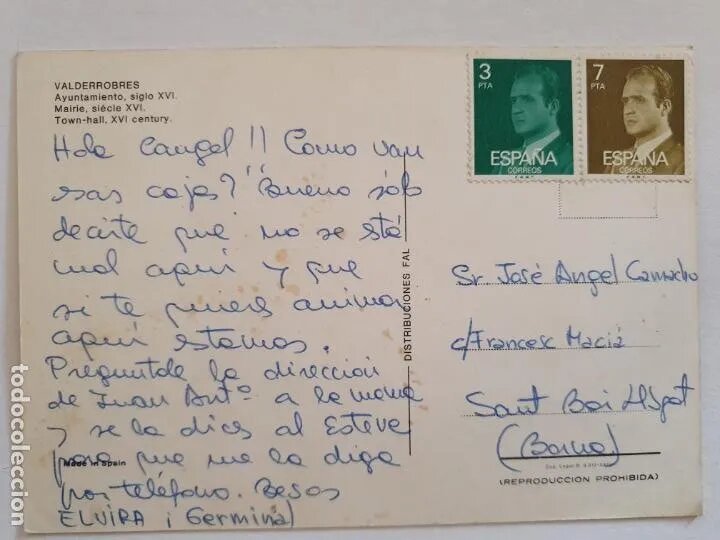 VALDERROBRES
Ayuntamiento, siglo XVI.
Mairie, siécle XVI.
Town-hall, XVI century.
3 PTA
ESPAÑA
CORREOS
7 PTA
ESPAÑA
CORREOS
Hola Cangel!! Como van
esas cajas? Bueno sólo
decirte que no se está
mal aquí y que
si te quieres animar
aquí estamos.
Preguntale la dirección
de Juan Antº a la mama
y se la dices al Esteve
para que me la diga
por teléfono. Besos
ELVIRA i Germinal
Made in Spain
DISTRIBUCIONES FAL
Sr. José Angel Camacho
c/Francesc Macià
Sant Boi Llgat
(Barna)
(REPRODUCCION PROHIBIDA)
todocoleccion